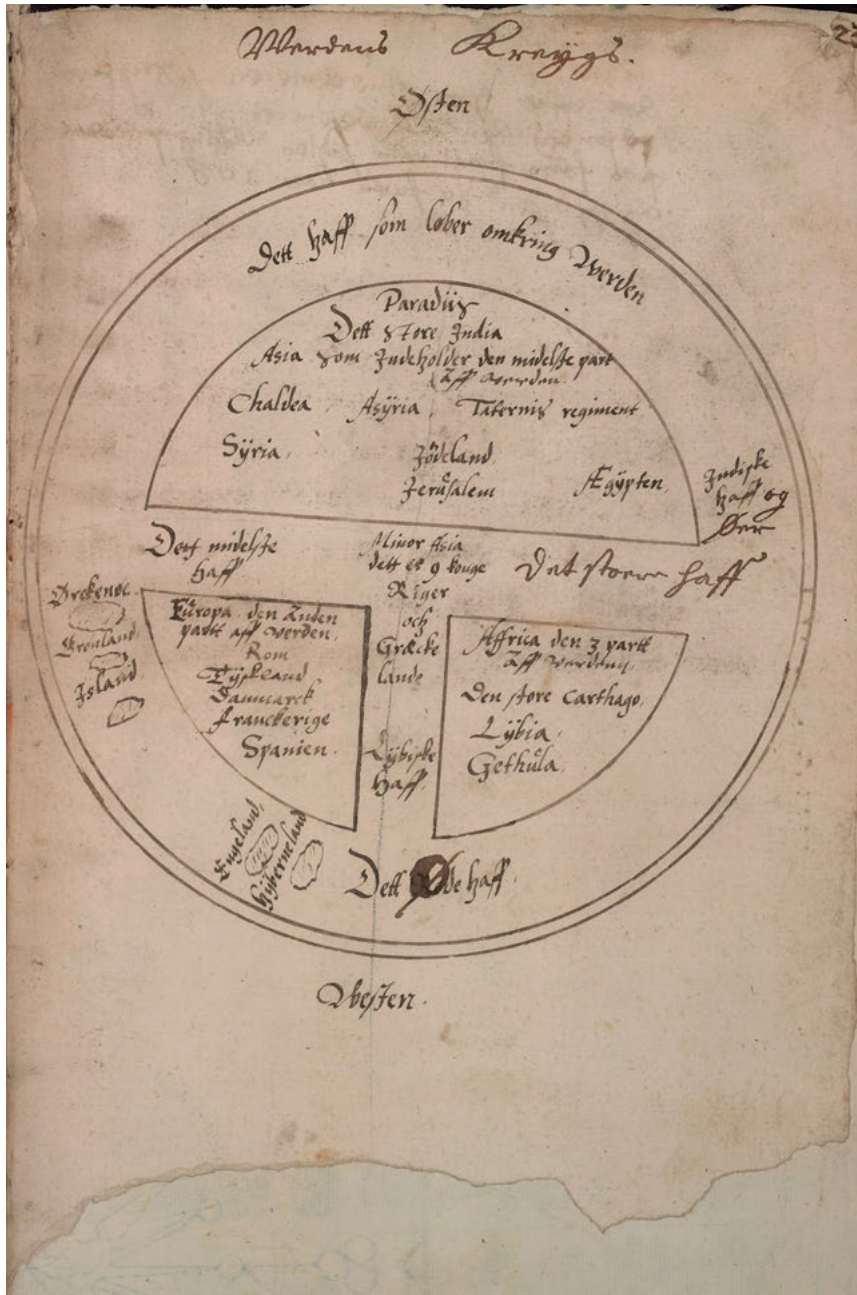 Werdens Kreÿgs.
23
Østen
Dett haff som løber omkring Werden
Paradiis
Dett Store India
Asia Som Indeholder den midelste part
aff werden.
Chaldea. Asÿria. Taternis regiment
Sÿria.
Jødeland
Jerŭsalem
Ægÿpten.
Indiske
haff og
Øer
Dett midelste
haff
Minor Asia
dett er 9 konge
Riger
och
Græcke
lande
Det stoere haff
Ørckenøe.
Grønland.
Island.
Eŭropa den Anden
partt aff werden.
Rom
Tÿskeland
Danmarck
franckerige
Spanien.
Affrica den 3 partt
Aff werden.
Den store Carthago.
Lÿbia.
Gethŭla.
Lÿbiske
haff.
Engeland.
Hÿberneland
Dett haff.
Westen.